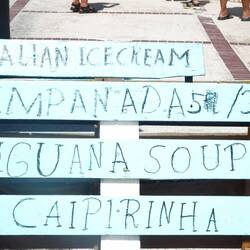 ALIAN ICECREAM
MPANADAS
IGUANA SOUP
CAIPIRINHA